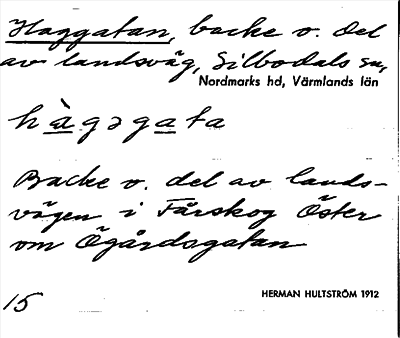 Haggatan, backe o. del
av landsväg, Silbodals sn,
Nordmarks hd, Värmlands län
hàgəgata
Backe o. del av lands-
vägen i Fårskog Öster
om Ögårdsgatan
15
HERMAN HULTSTRÖM 1912